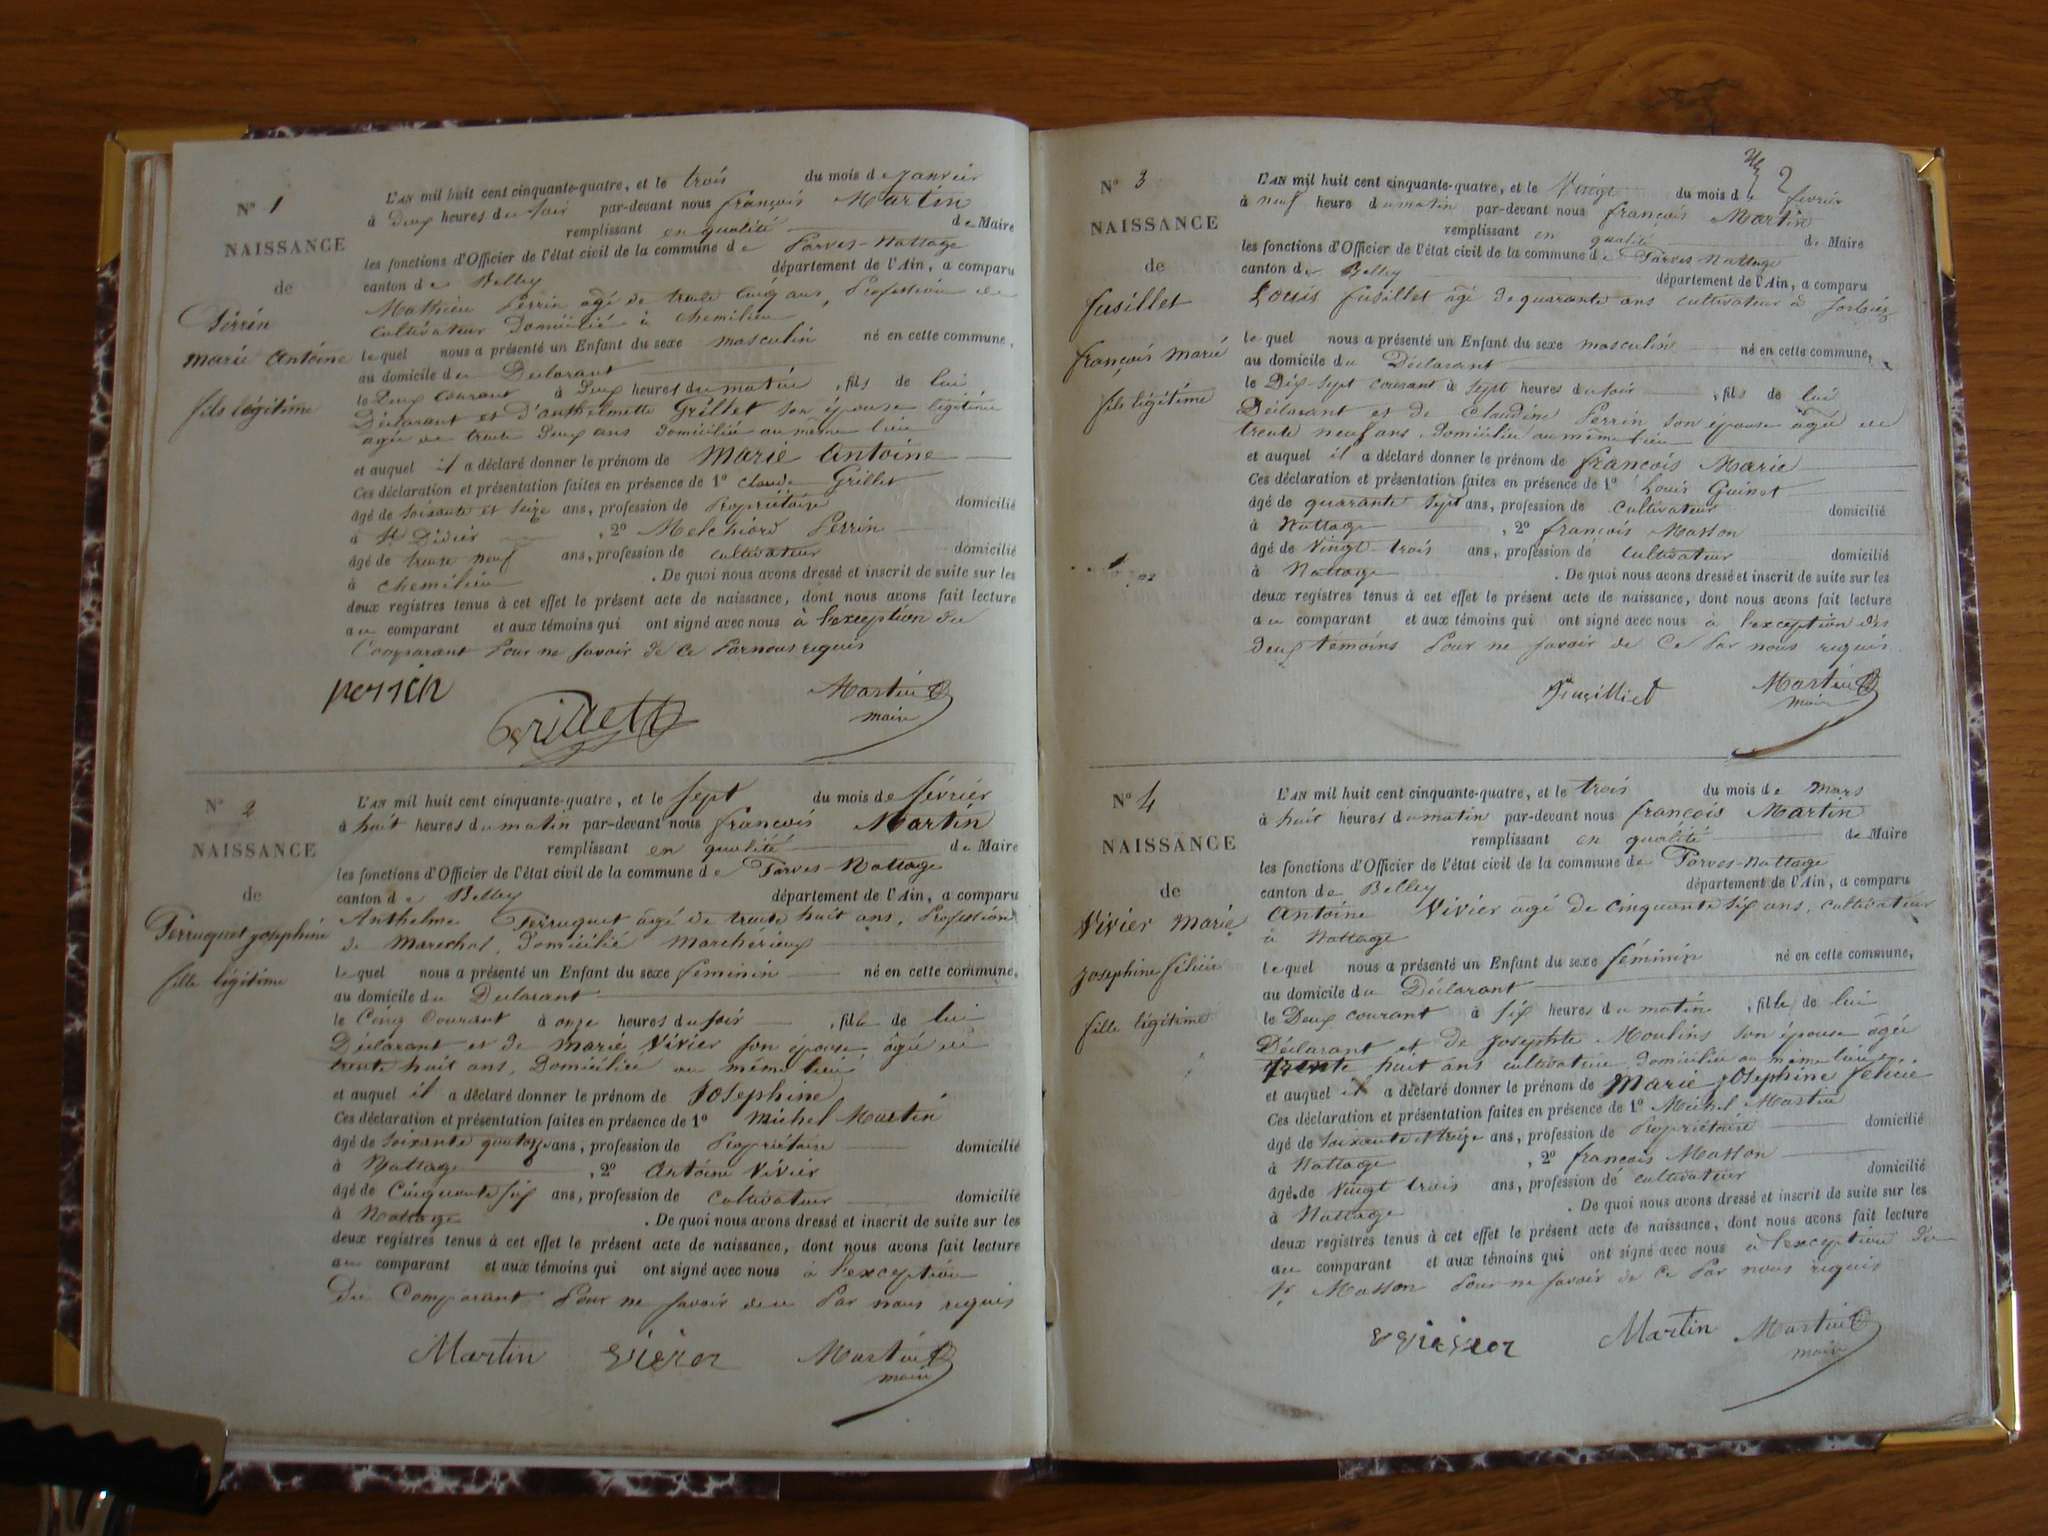 N° 1
NAISSANCE
de
Perrin
marie Antoine
fils légitime
L'AN mil huit cent cinquante-quatre, et le trois du mois de janvier
à Deux heures du soir par-devant nous françois Martin
remplissant en qualité de Maire
les fonctions d'Officier de l'état civil de la commune de Parves-Nattage
canton de Belley département de l'Ain, a comparu
Mathieu Perrin agé de trente cinq ans, Profession de
cultivateur Domicilié à chemilieu
lequel nous a présenté un Enfant du sexe masculin né en cette commune,
au domicile du Déclarant
le Deux courant à Deux heures du matin, fils de lui
Déclarant et d'anthelmette Grillet son épouse légitime
agée de trente Deux ans domiciliée au même lieu
et auquel il a déclaré donner le prénom de Marie Antoine
Ces déclaration et présentation faites en présence de 1° claude Grillet
âgé de soixante et seize ans, profession de Propriétaire domicilié
à St Didier, 2° Melchiord Perrin
âgé de trente neuf ans, profession de cultivateur domicilié
à chemilieu. De quoi nous avons dressé et inscrit de suite sur les
deux registres tenus à cet effet le présent acte de naissance, dont nous avons fait lecture
au comparant et aux témoins qui ont signé avec nous à l'exception du
Comparant Pour ne savoir de ce Par nous requis
perrin Grillett Martin
maire
N° 2
NAISSANCE
de
Perruquet josephine
fille légitime
L'AN mil huit cent cinquante-quatre, et le sept du mois de février
à huit heures du matin par-devant nous françois Martin
remplissant en qualité de Maire
les fonctions d'Officier de l'état civil de la commune de Parves-Nattage
canton de Belley département de l'Ain, a comparu
Anthelme Perruquet agé de trente huit ans, Profession
de Marechal, domicilié Marchérieux
lequel nous a présenté un Enfant du sexe féminin né en cette commune,
au domicile du Declarant
le Cinq Courant à onze heures du soir, fille de lui
Déclarant et de marie Vivier son épouse âgée de
trente huit ans, Domiciliée au même lieu
et auquel il a déclaré donner le prénom de Josephine
Ces déclaration et présentation faites en présence de 1° Michel Martin
âgé de soixante quatorze ans, profession de Propriétaire domicilié
à Nattage, 2° Antoine Vivier
âgé de Cinquante six ans, profession de Cultivateur domicilié
à Nattage. De quoi nous avons dressé et inscrit de suite sur les
deux registres tenus à cet effet le présent acte de naissance, dont nous avons fait lecture
au comparant et aux témoins qui ont signé avec nous à l'exception
Du Comparant Pour ne savoir de ce Par nous requis
Martin vivier Martin
maire
2
N° 3
NAISSANCE
de
fusillet
françois marie
fils légitime
L'AN mil huit cent cinquante-quatre, et le Vingt du mois de fevrier
à neuf heure du matin par-devant nous françois Martin
remplissant en qualité de Maire
les fonctions d'Officier de l'état civil de la commune de Parves-Nattage
canton de Belley département de l'Ain, a comparu
Louis fusillet âgé de quarante ans cultivateur à Sorbier
lequel nous a présenté un Enfant du sexe masculin né en cette commune,
au domicile du Déclarant
le Dix-sept courant à sept heures du soir, fils de lui
Déclarant et de Claudine Perrin son épouse âgée de
trente neuf ans, domiciliée au même lieu
et auquel il a déclaré donner le prénom de françois Marie
Ces déclaration et présentation faites en présence de 1° Louis Guinet
âgé de quarante sept ans, profession de Cultivateur domicilié
à Nattage, 2° françois Masson
âgé de Vingt-trois ans, profession de cultivateur domicilié
à Nattage. De quoi nous avons dressé et inscrit de suite sur les
deux registres tenus à cet effet le présent acte de naissance, dont nous avons fait lecture
au comparant et aux témoins qui ont signé avec nous à l'exception des
deux témoins Pour ne savoir de Ce Par nous requis
fuzilliet Martin
maire
N° 4
NAISSANCE
de
Vivier Marie
josephine félicie
fille légitime
L'AN mil huit cent cinquante-quatre, et le trois du mois de Mars
à huit heures du matin par-devant nous françois Martin
remplissant en qualité de Maire
les fonctions d'Officier de l'état civil de la commune de Parves-Nattage
canton de Belley département de l'Ain, a comparu
Antoine Vivier agé de cinquante six ans, cultivateur
à Nattage
lequel nous a présenté un Enfant du sexe féminin né en cette commune,
au domicile du Déclarant
le Deux courant à six heures du matin, fille de lui
Déclarant et de josephte Moulins son épouse âgée
trente huit ans cultivatrice, domiciliée au même lieu
et auquel il a déclaré donner le prénom de Marie josephine felicie
Ces déclaration et présentation faites en présence de 1° Michel Martin
âgé de soixante et treize ans, profession de Propriétaire domicilié
à Nattage, 2° françois Masson
âgé de Vingt trois ans, profession de cultivateur domicilié
à Nattage. De quoi nous avons dressé et inscrit de suite sur les
deux registres tenus à cet effet le présent acte de naissance, dont nous avons fait lecture
au comparant et aux témoins qui ont signé avec nous à l'exception du
Sr Masson Pour ne savoir de Ce Par nous requis
vivier Martin Martin
maire